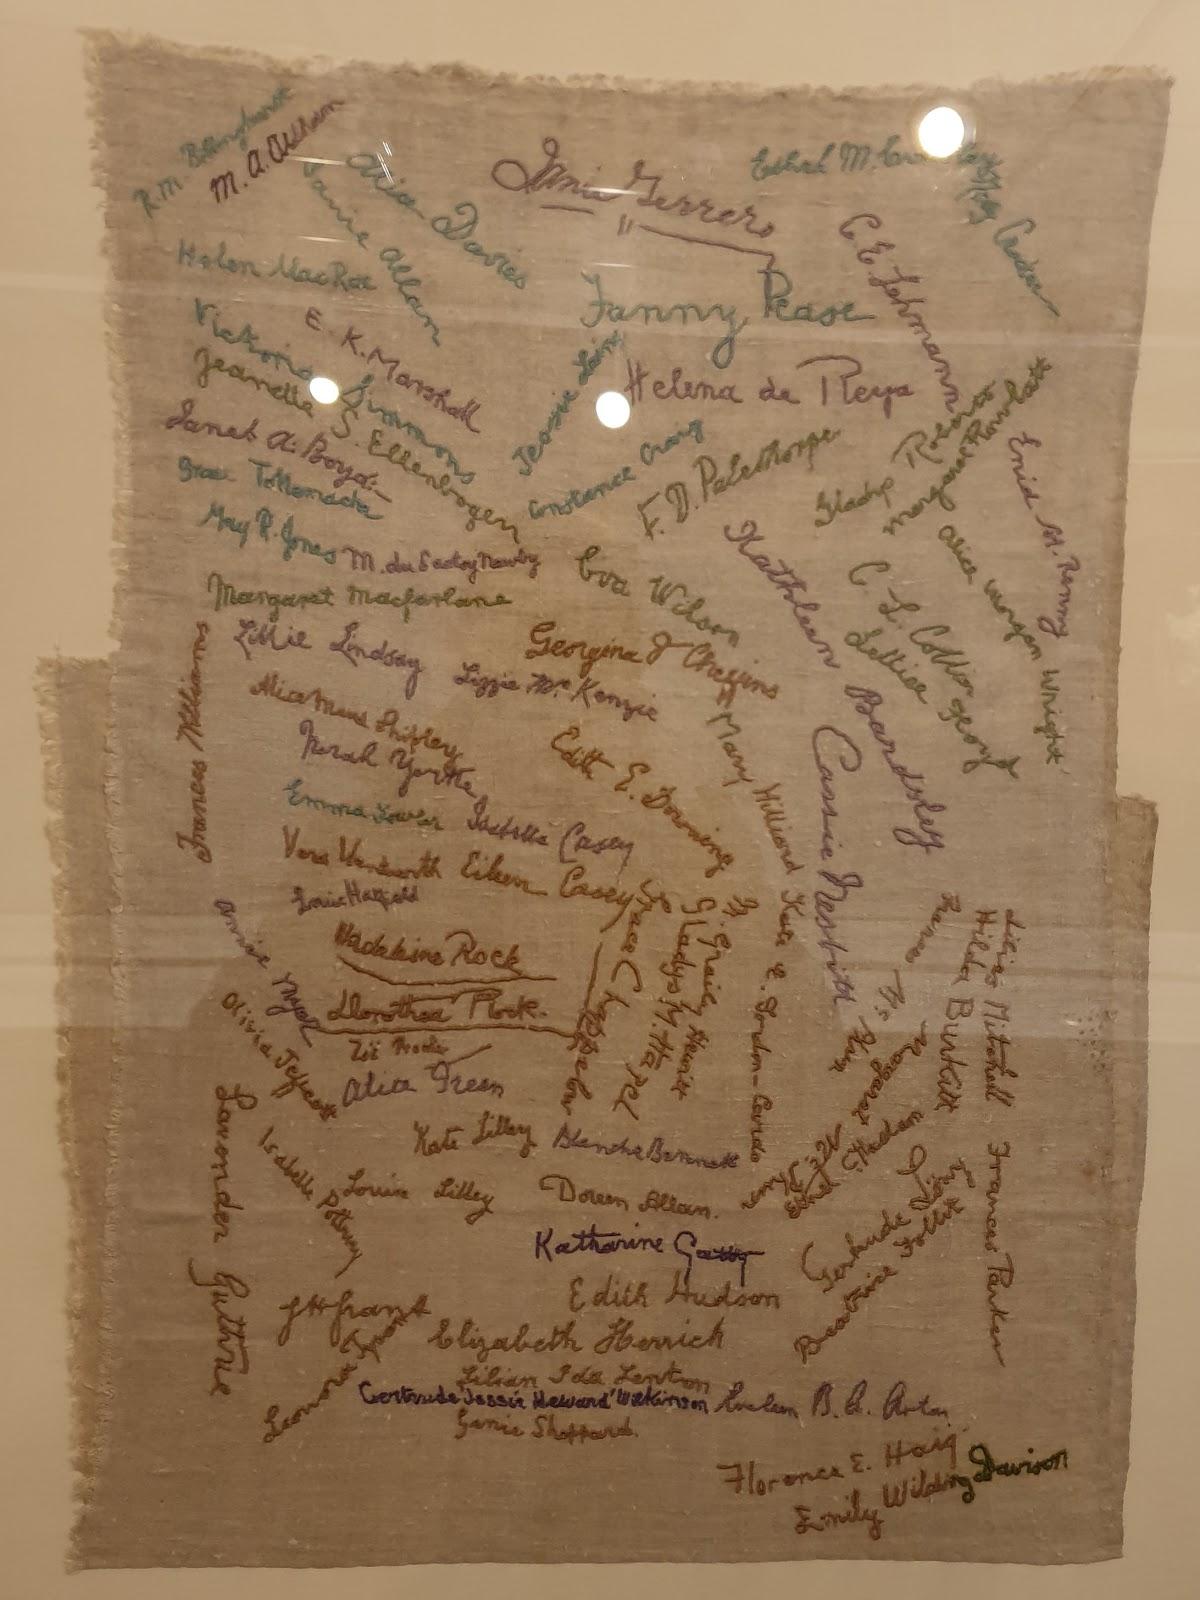 R.M. Billinghurst
M. A. Aldham
Alice Davies
Janie Allan
Janie Terrero
Ethel M.
C. E. Lehmann
Helen MacRae
Fanny Pease
E. K. Marshall
Victoria Simmons
Jessie Laing
Helena de Reya
Jeanette S. Ellenbogen
Janet A. Boyd.
Constance Craig
F. D. Palethorpe
Gladys Roberts
Margaret Rowlatt
Enid M. Renny
Grace Tollemache
May R. Jones
M. du Sautoy Newby
Eva Wilson
Kathleen Bardsley
C. L. Collier
Alice Morgan Wright.
Lettice Floyd
Margaret Macfarlane
Lillie Lindsay
Georgina F Cheffins
Lizzie Mc Kenzie
Frances Williams
Mary Hilliard
Cassie Nesbitt
Norah Yorke
Edith E. Downing
Emma Fowler
Isabella Casey
Vera Wentworth
Eileen Casey
Louie Hatfield
Grace Chappelow
Gladys M. Hazel
G. Graily Hewitt
Kate E. Gordon-Cardo
Hilda Burkitt
Lilias Mitchell
Frances Parker
Madeleine Rock
Dorothea Rock.
Annie Myer
Olivia Jeffcott
Zoë Procter
Alice Green
Kate Lilley
Blanche Bennett
Louise Lilley
Doreen Allan.
Lavender Guthrie
Isabella Potbury
Katharine Gatty
Edith Hudson
Beatrice
Gertrude
Leonora
Elizabeth Herrick
Lilian Ida Lenton
Gertrude Jessie Heward Wilkinson
Genie Sheppard.
Florence E. Haig.
Emily Wilding Davison